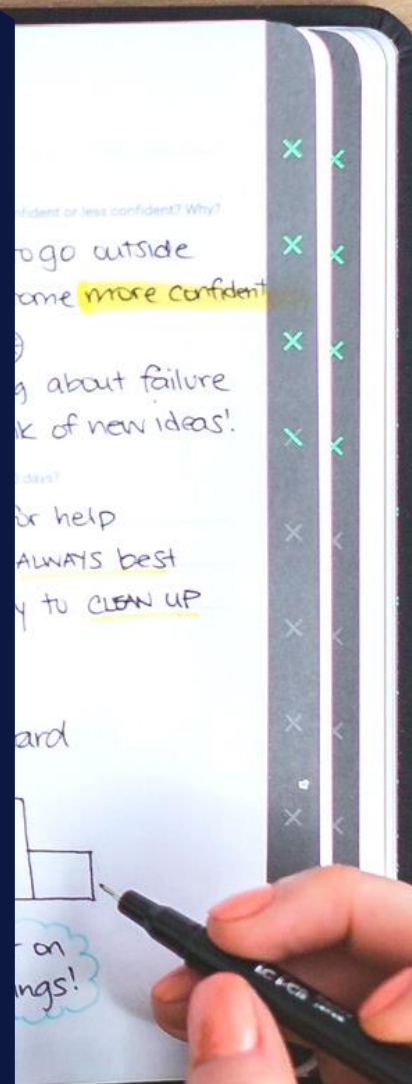 nfident or less confident? Why?
o go outside
ome more confident
g about failure
nk of new ideas!
days?
or help
ALWAYS best
y to CLEAN UP
ard
on
ings!